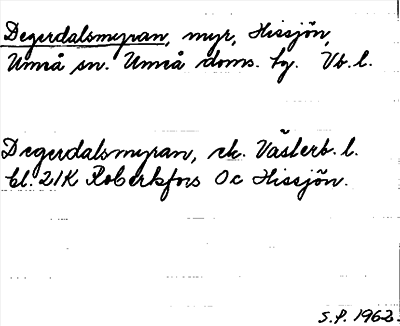 Degerdalsmyran, myr, Hissjön,
Umeå sn. Umeå doms. hg. Vb. l.
Degerdalsmyran, ek. Västerb. l.
bl. 21K Robertsfors Oc Hissjön.
S.P. 1962.